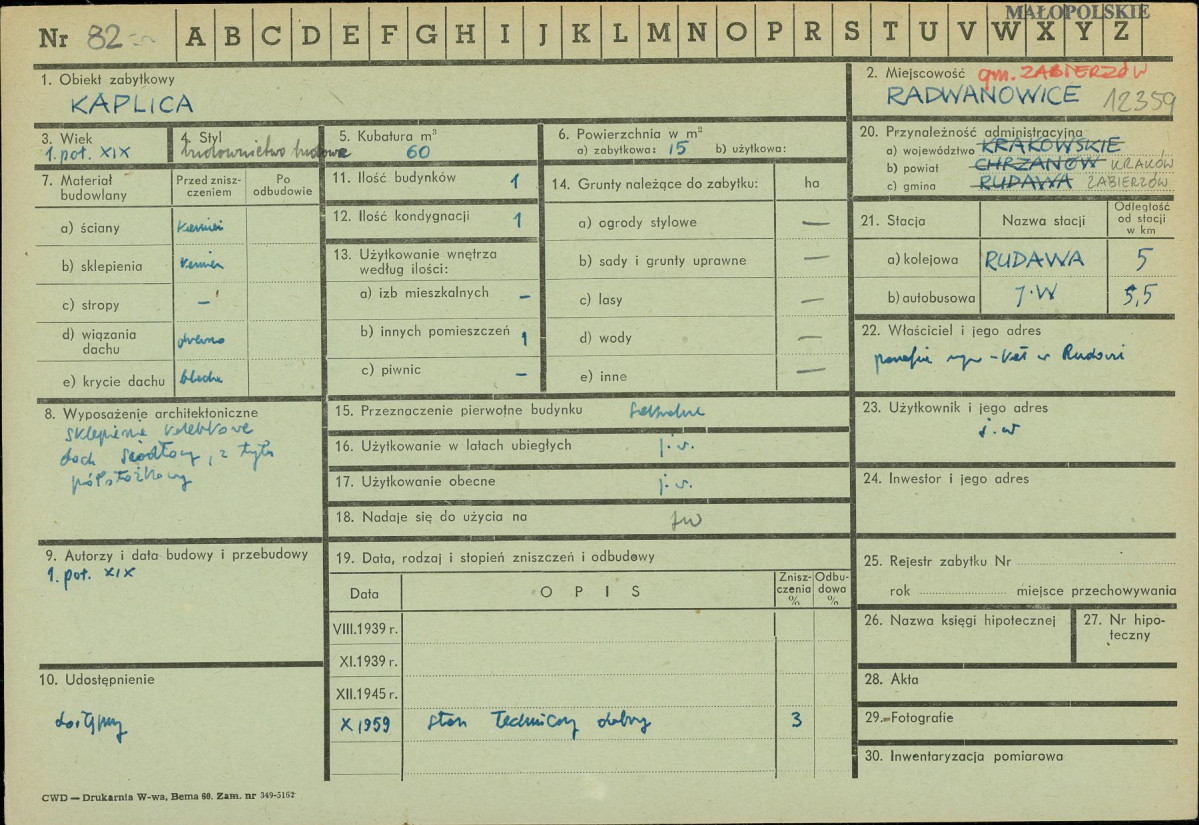 MAŁOPOLSKIE
Nr 82
A B C D E F G H I J K L M N O P R S T U V W X Y Z
1. Obiekt zabytkowy
KAPLICA
2. Miejscowość gm. ZABIERZÓW
RADWANOWICE 12359
3. Wiek
1. poł. XIX
4. Styl
budownictwo ludowe
5. Kubatura m³
60
6. Powierzchnia w m²
a) zabytkowa: 15 b) użytkowa:
20. Przynależność administracyjna
a) województwo KRAKOWSKIE
b) powiat CHRZANÓW KRAKÓW
c) gmina RUDAWA ZABIERZÓW
7. Materiał budowlany
Przed znisz-
czeniem
Po
odbudowie
a) ściany kamień
b) sklepienia kamień
c) stropy –
d) wiązania
dachu drewno
e) krycie dachu blacha
11. Ilość budynków 1
12. Ilość kondygnacji 1
13. Użytkowanie wnętrza
według ilości:
a) izb mieszkalnych –
b) innych pomieszczeń 1
c) piwnic –
14. Grunty należące do zabytku: ha
a) ogrody stylowe —
b) sady i grunty uprawne —
c) lasy —
d) wody —
e) inne —
21. Stacja Nazwa stacji Odległość
od stacji
w km
a) kolejowa RUDAWA 5
b) autobusowa J.W 5,5
22. Właściciel i jego adres
parafia rzym-kat w Rudawie
8. Wyposażenie architektoniczne
sklepienie kolebkowe
dach siodłowy, z tyłu
półstożkowy
15. Przeznaczenie pierwotne budynku sakralne
16. Użytkowanie w latach ubiegłych j.w.
17. Użytkowanie obecne j.w.
18. Nadaje się do użycia na jw
23. Użytkownik i jego adres
j.w
24. Inwestor i jego adres
9. Autorzy i data budowy i przebudowy
1. poł. XIX
19. Data, rodzaj i stopień zniszczeń i odbudowy
Data O P I S Znisz-
czenia
% Odbu-
dowa
%
VIII.1939 r.
XI.1939 r.
XII.1945 r.
X 1959 stan techniczny dobry 3
25. Rejestr zabytku Nr
rok miejsce przechowywania
26. Nazwa księgi hipotecznej
27. Nr hipo-
teczny
10. Udostępnienie
dostępny
28. Akta
29. Fotografie
30. Inwentaryzacja pomiarowa
CWD — Drukarnia W-wa, Bema 60. Zam. nr 349-5162